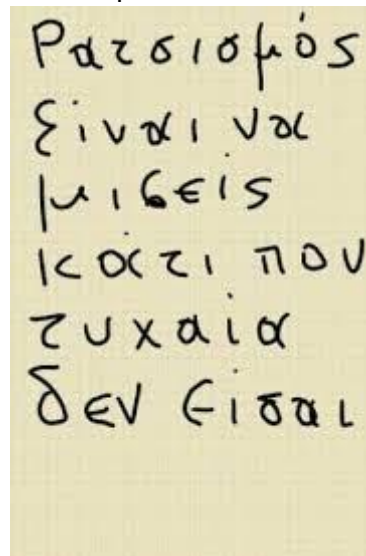 Ρατσισμός
είναι να
μισείς
κάτι που
τυχαία
δεν είσαι